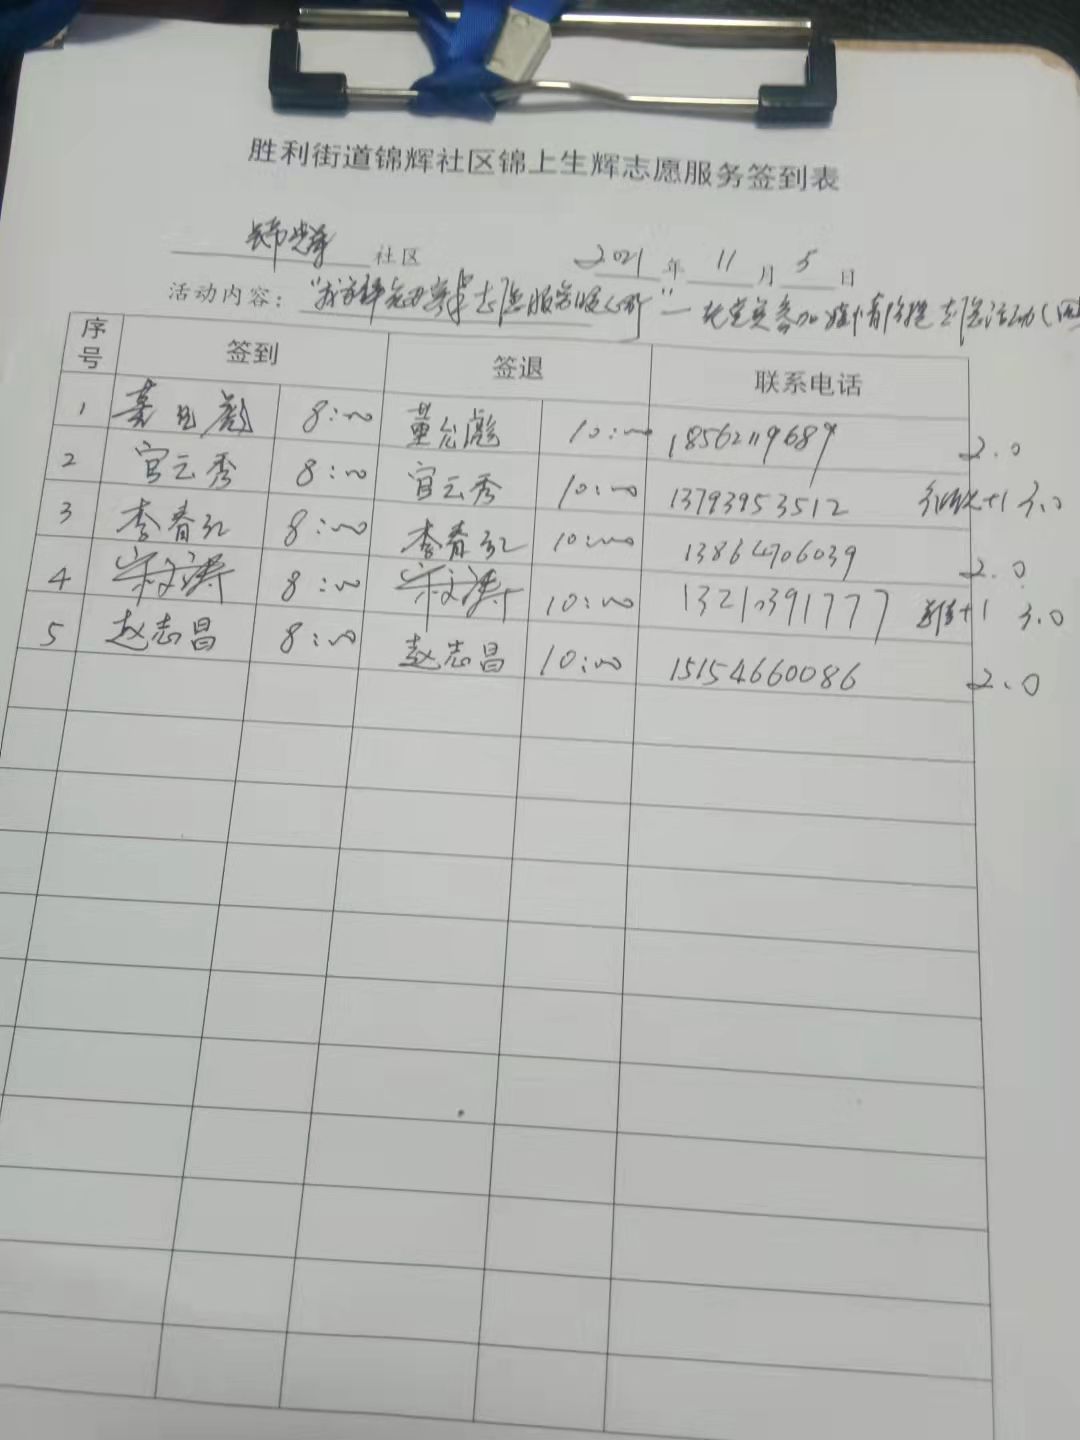 胜利街道锦辉社区锦上生辉志愿服务签到表
锦辉 社区 2021 年 11 月 5 日
活动内容： 志愿服务 党员参加疫情防控志愿活动(
序号 签到 签退 联系电话
1 8:00 董允彪 10:00 18562119689 2.0
2 官云秀 8:00 官云秀 10:00 13793953512 +1 3.0
3 李春红 8:00 李春红 10:00 13864706039 2.0
4 宋文涛 8:00 宋文涛 10:00 13210391777 +1 3.0
5 赵志昌 8:00 赵志昌 10:00 15154660086 2.0